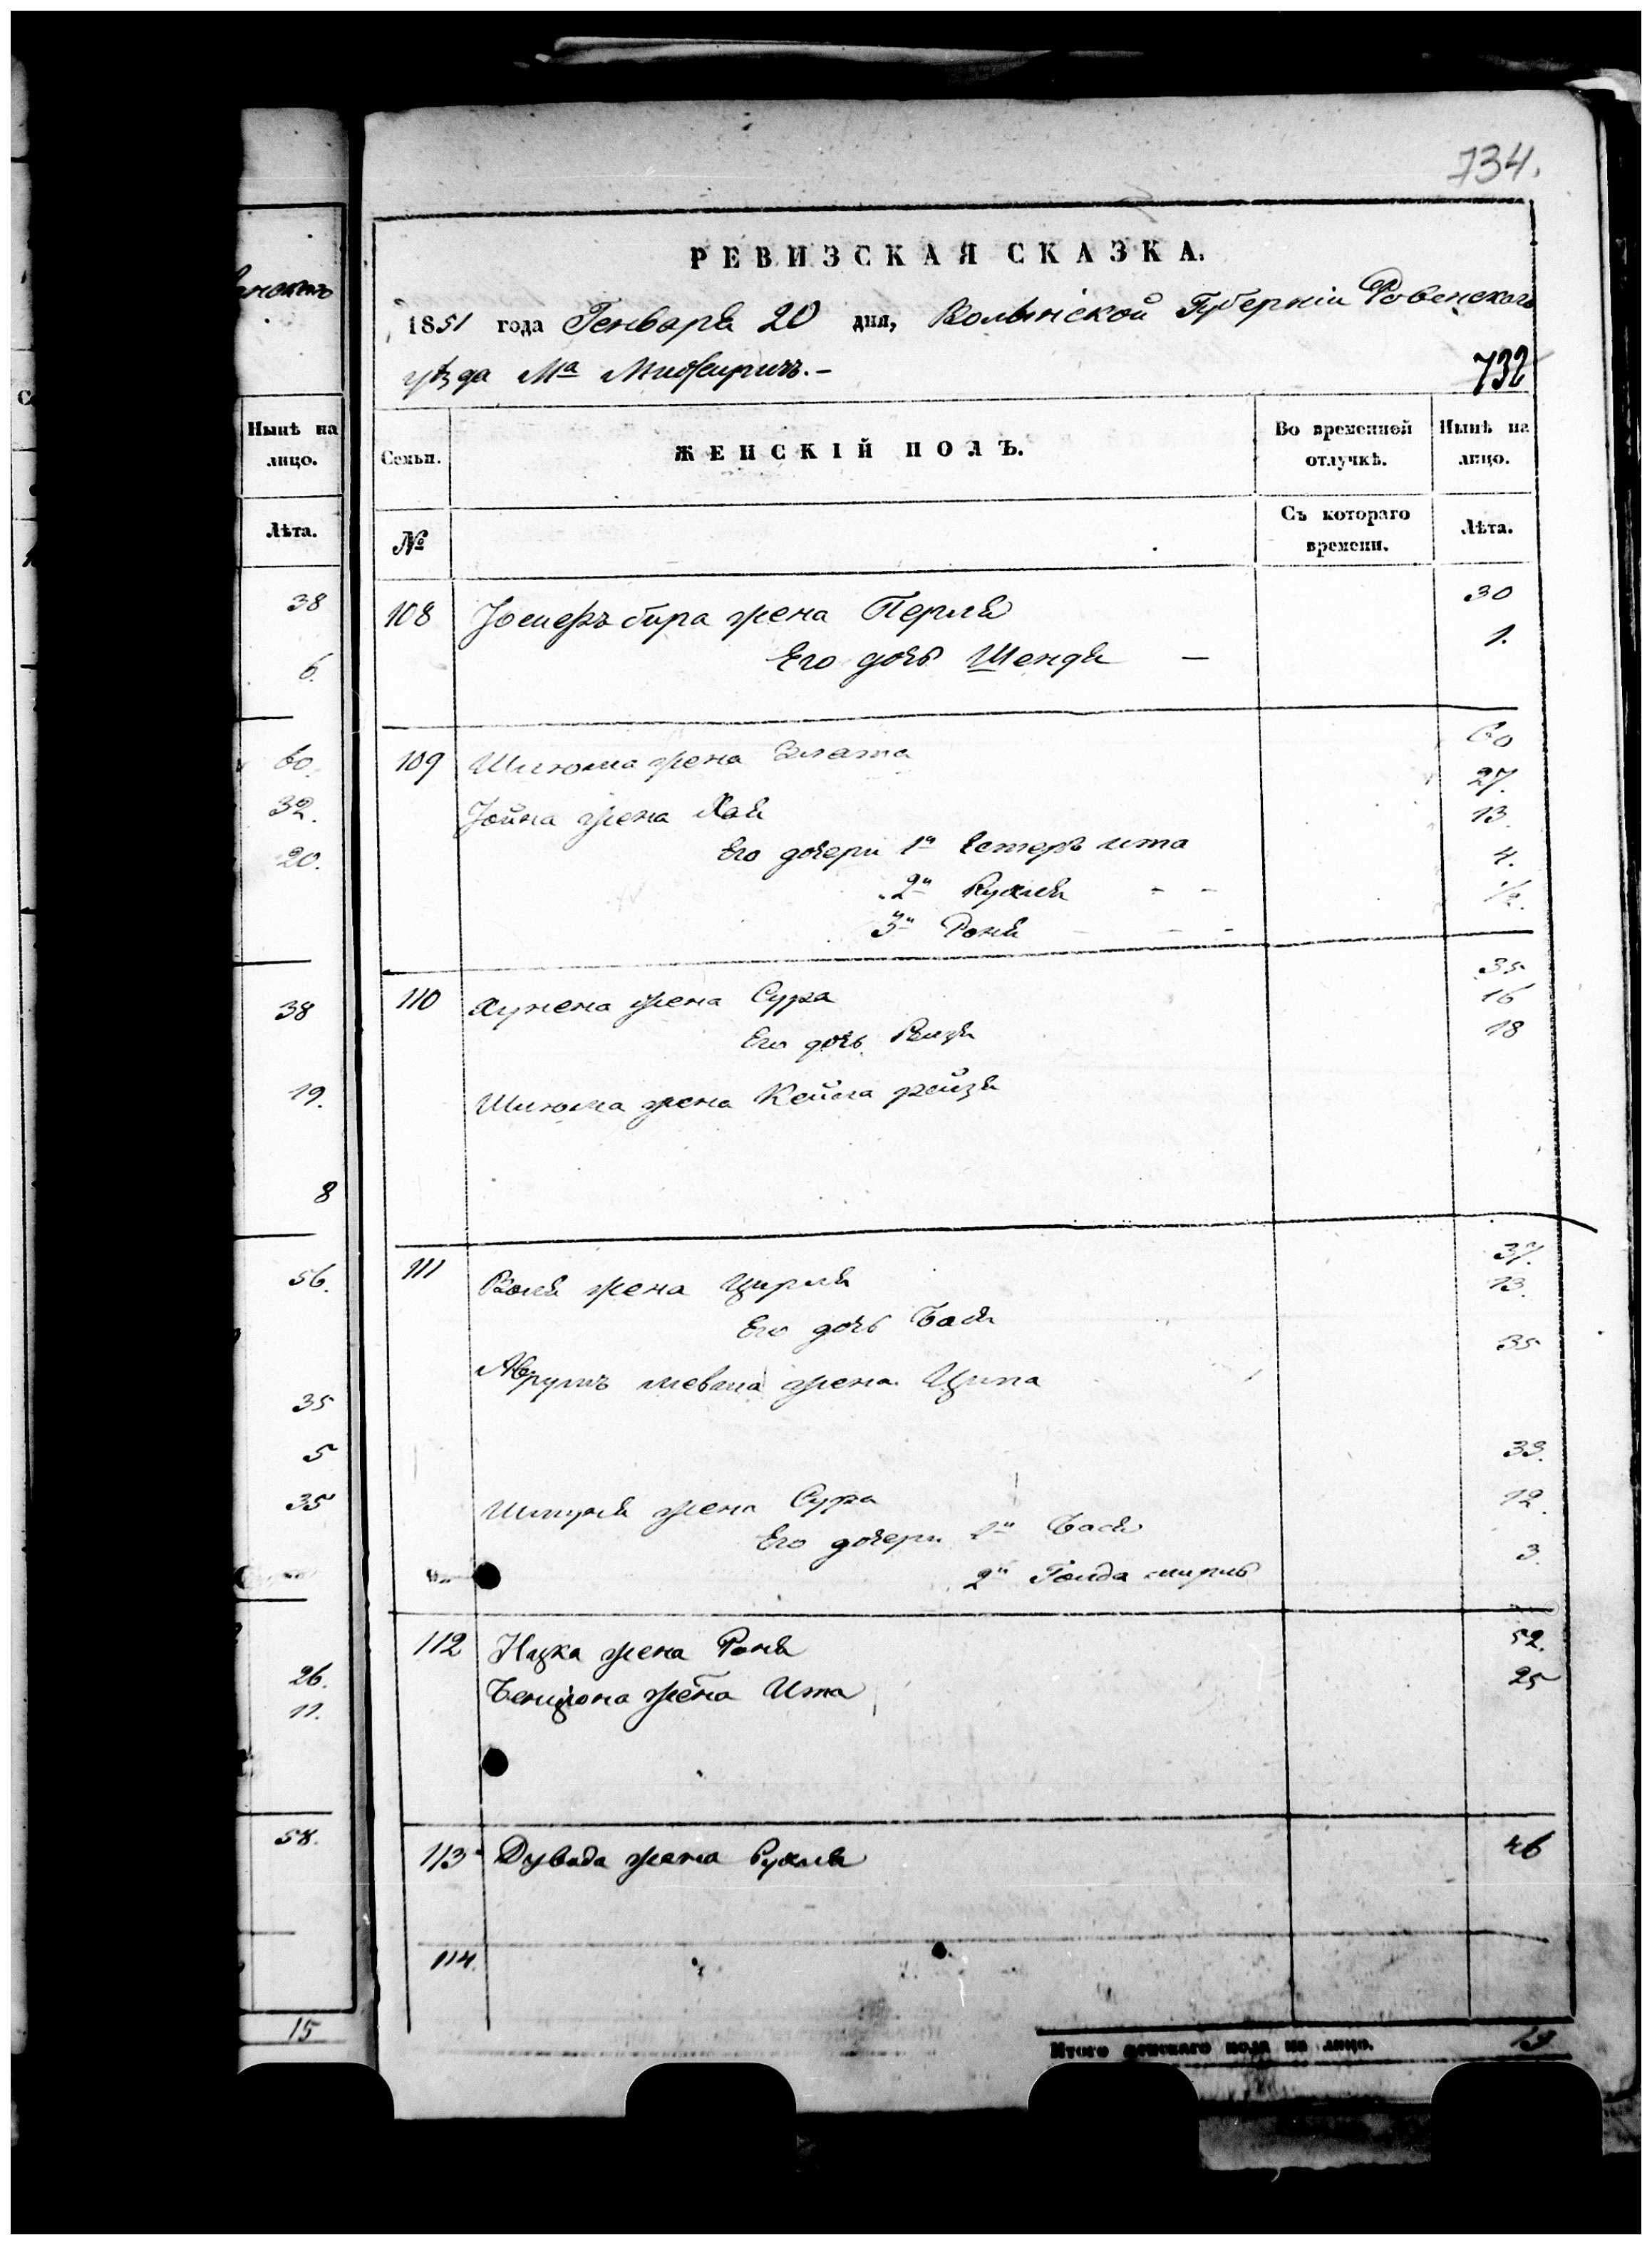 734.
РЕВИЗСКАЯ СКАЗКА.
1851 года Генваря 20 дня, Волынской Губерніи Ровенскаго
уѣзда Мᵃ Межирич. -
732
Нынѣ на лицо.
Лѣта.
Семьи.
№
ЖЕНСКІЙ ПОЛЪ.
Во временной отлучкѣ.
Съ котораго времени.
Нынѣ на лицо.
Лѣта.
38
6.
60.
32.
20.
38
19.
8
56.
35
5
35
26.
11.
58.
15
108 жена Перля 30
Его дочь Шендя — 1.
109 Шлиома жена Злата 60
Іойна жена Хая 27.
Его дочери 1я Естеръ ита 13.
2я Рухля - - 4.
3я Роня - - - 1/2.
110 Хунена жена Сура 35
Его дочь Рейзя 16
Шлиома жена Кейла рейзя 18
111 Воля жена Цирля 37.
Его дочь Бася 13.
Аврумъ жена Ципа 35
жена Сура 33.
Его дочери 1я Бася 12.
2я Голда мирль 3.
112 жена Роня 52.
Бенциона жена Ита 25
113 Дувида жена Рухля 46
114.
Итого женскаго пола на лицо.